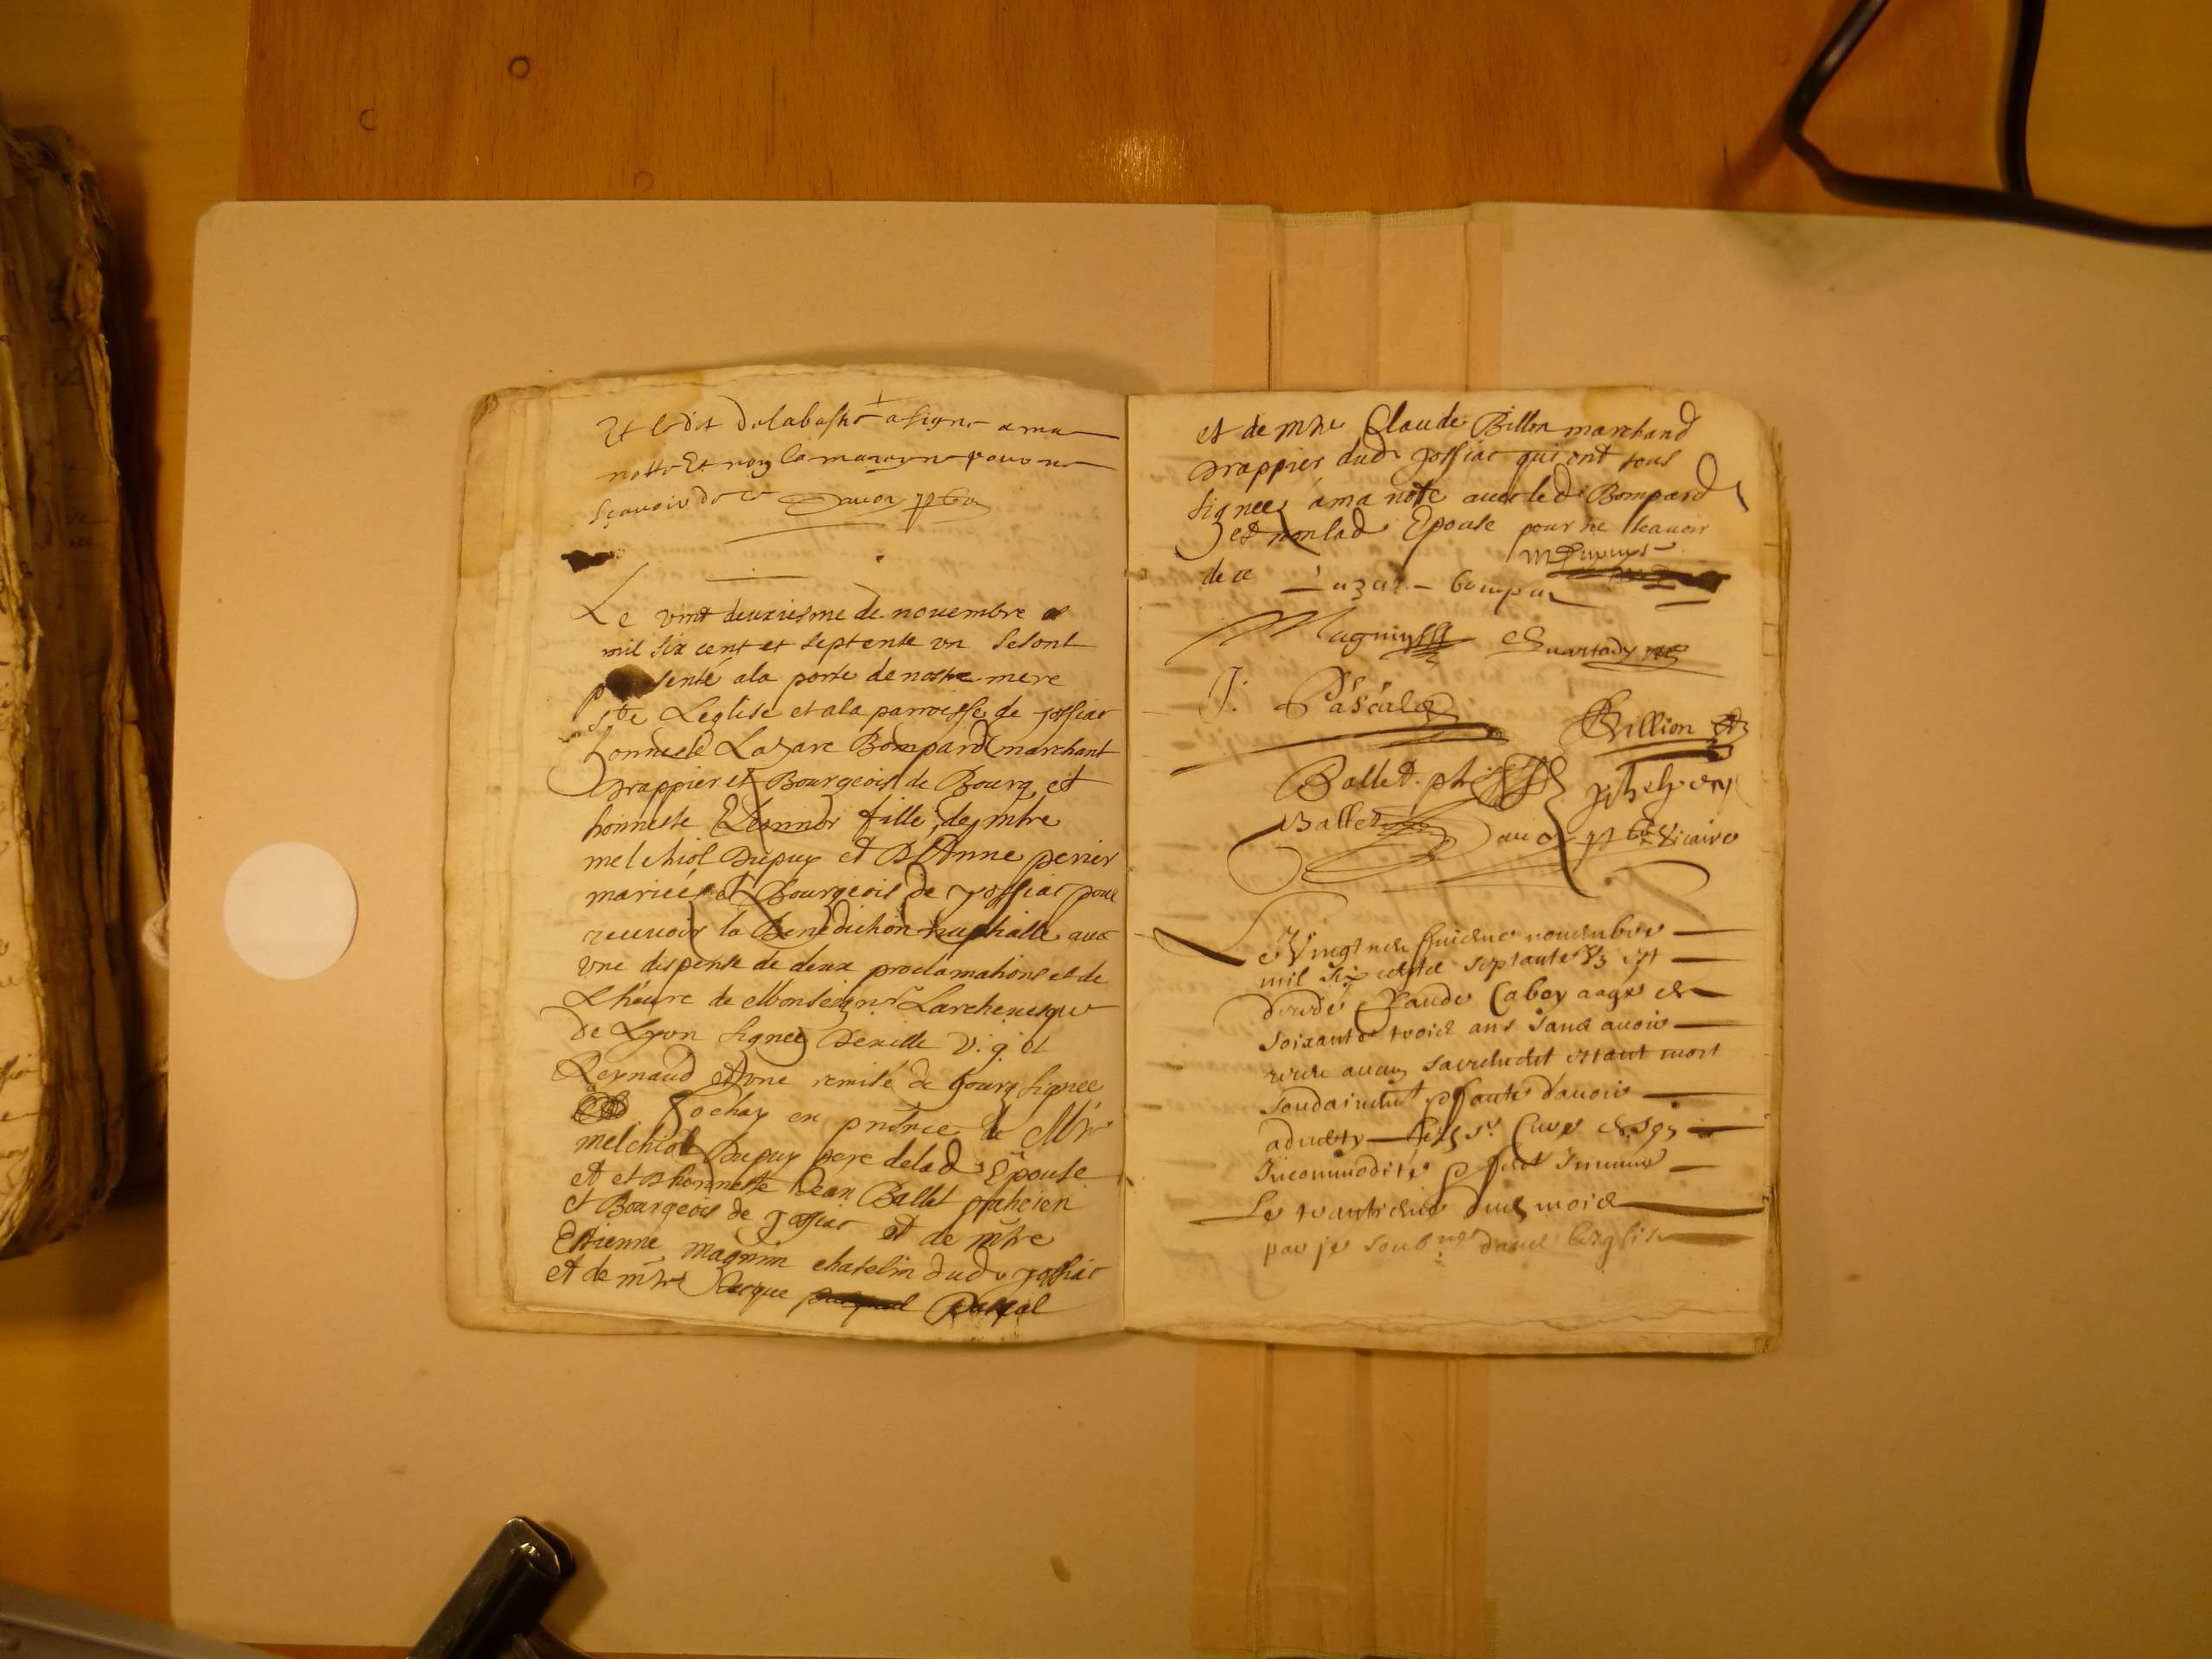 Et ledit delabastie a signe a ma
notte Et non la marayne pour ne
sçavoir de ce Davon pbre
Le vint deuxiesme de nouembre
mil six cent et septente vn se sont
senté a la porte de nostre mere
ste Leglise et a la parroisse de
honneste Lazare Bompard marchant
Drappier et Bourgeois de Bourg et
honneste Eleonnor fille de mtre
melchiol Dupuy et D Anne perier
mariées et Bourgeois de pour
receuoir la Benediction nuptialle auec
vne dispense de deux proclamations et de
Lheure de Monseignr Larcheuesque
De Lyon signee Deville v. g. et
Reynaud et vne remise de bourg signee
en pntce de Mre
melchiol Dupuy pere de lad Epouse
et et honneste Jean Ballet praticien
et Bourgeois de et de mtre
Estienne magnin chatelin dud
et de mtre Jacque Pascal
et de mtre Claude Billon marchand
Drappier dud qui ont tous
signees a ma note auec led Bompard
et non lad Epouse pour ne scauoir
de ce Lazare Bompar
MDupuys
Magnin
J. Pascal Billion
Ballet
Ballet Davon pbre vicaire
Le Vingt neufuiesme nouembre
mil six cents septante vn est
decede Claude Caboy aage de
soixante trois ans sans auoir
receu aucun sacrement estant mort
soudainement faute d'auoir
aduerty sr Cure de son
Incommodite et fust Inhumé
Le trantiesme dud mois
par je soubne dans leglise